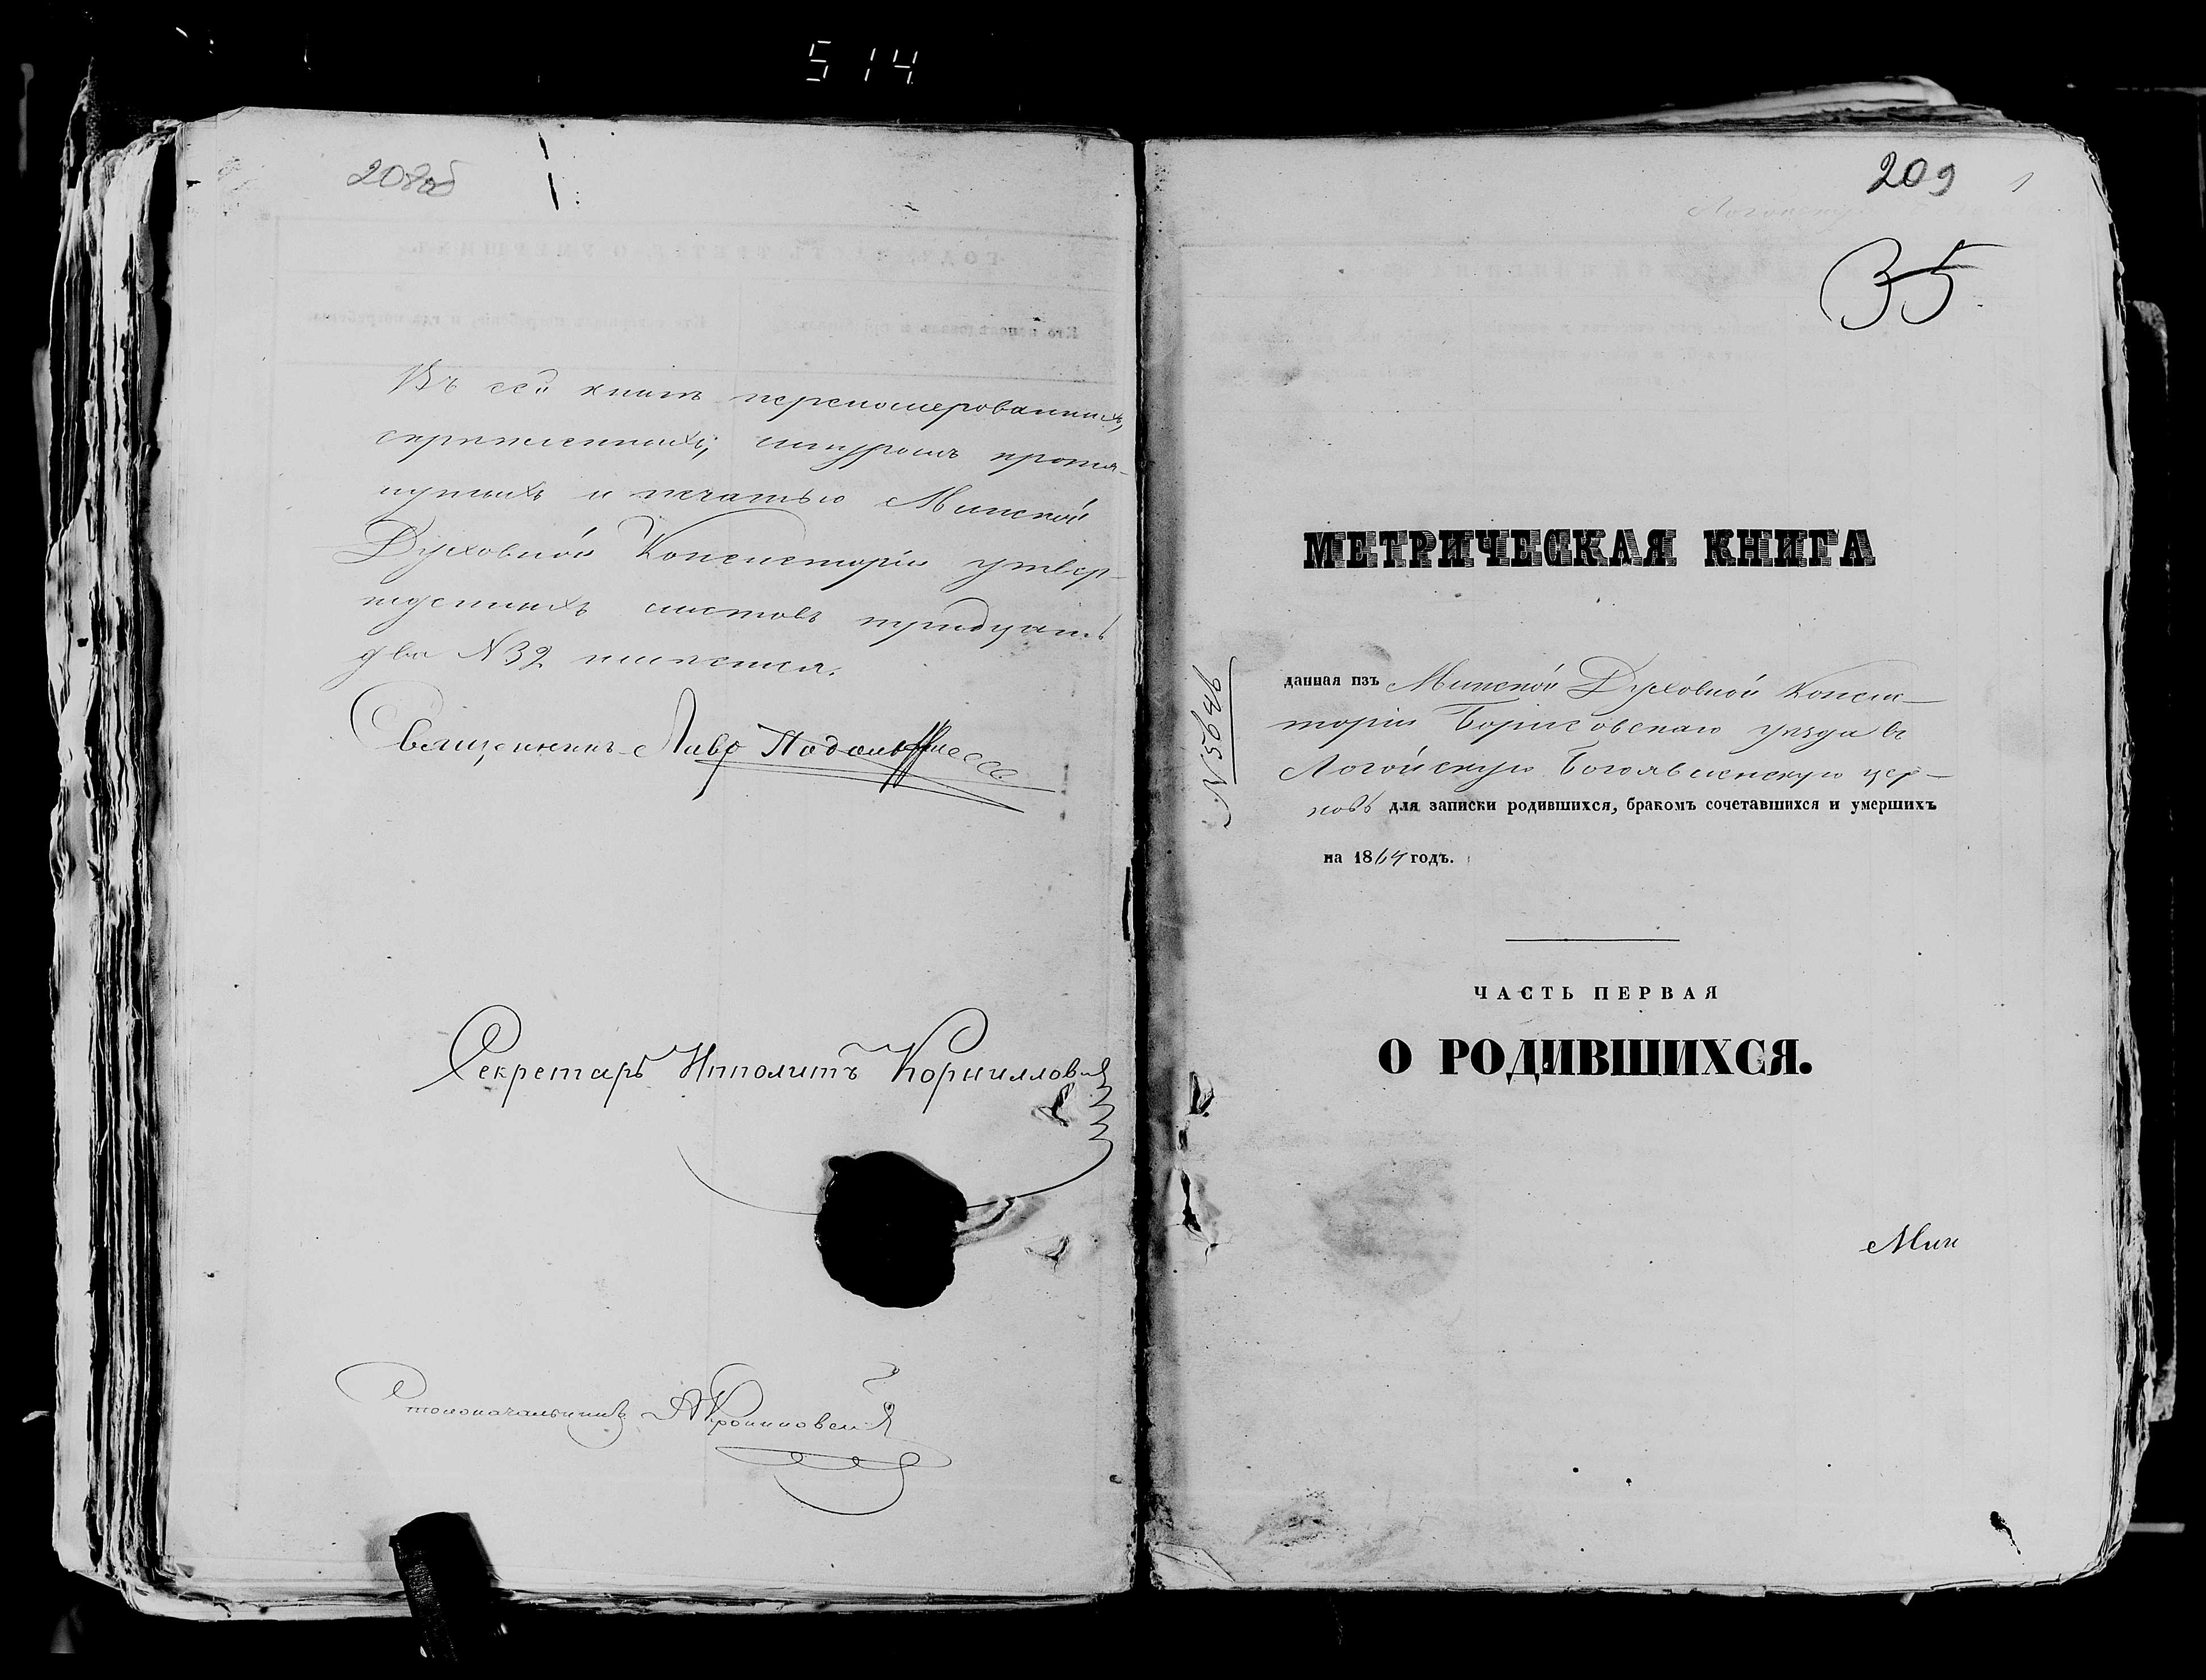 514
208об
Въ сей книгѣ переномерованныхъ,
скрѣпленныхъ, шнуромъ протя-
нутыхъ и печатью Минской
Духовной Консисторіи утвер-
жденныхъ листовъ тридцать
два №32 имѣется.
Священникъ
Секретарь Ипполитъ Корниллов
Столоначальникъ
209 1
35
МЕТРИЧЕСКАЯ КНИГА
данная изъ Минской Духовной Консис-
торіи Борисовскаго уѣзда въ
Логойскую Богоявленскую цер-
ковь для записки родившихся, бракомъ сочетавшихся и умершихъ
на 1864 годъ.
ЧАСТЬ ПЕРВАЯ
О РОДИВШИХСЯ.
Мин